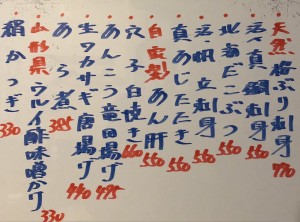 天然 梅ぶり刺身 770
活〆真鯛刺身 550
北海だこぶつ 550
活帆立刺身 550
真あじたたき 550
自家製 あん肝 550
穴子白焼き 660
あんこう竜田揚げ 495
生ワカサギ唐揚げ 440
あら煮 385
山形県 ウルイ酢味噌がけ 330
絹かつぎ 330